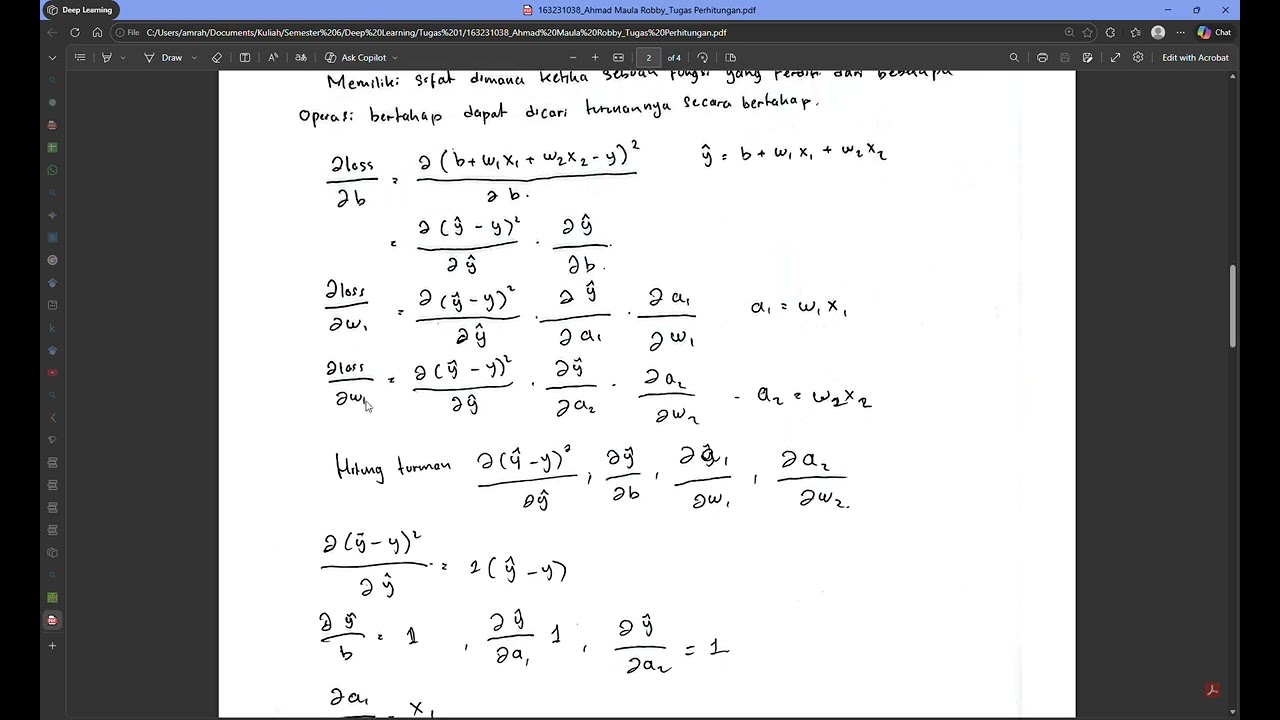 Deep Learning
163231038_Ahmad Maula Robby_Tugas Perhitungan.pdf
File C:/Users/amrah/Documents/Kuliah/Semester%206/Deep%20Learning/Tugas%201/163231038_Ahmad%20Maula%20Robby_Tugas%20Perhitungan.pdf
Chat
Draw Ask Copilot 2 of 4 Edit with Acrobat
Memiliki sifat dimana ketika sebuah fungsi yang terdiri dari beberapa
Operasi bertahap dapat dicari turunannya secara bertahap.
∂loss/∂b = ∂(b+w₁x₁+w₂x₂-y)²/∂b. ŷ = b+w₁x₁+w₂x₂
= ∂(ŷ-y)²/∂ŷ . ∂ŷ/∂b.
∂loss/∂w₁ = ∂(ŷ-y)²/∂ŷ . ∂ŷ/∂a₁ . ∂a₁/∂w₁ a₁ = w₁x₁
∂loss/∂w₁ = ∂(ŷ-y)²/∂ŷ . ∂ŷ/∂a₂ . ∂a₂/∂w₂ - a₂ = w₂x₂
Hitung turunan ∂(ŷ-y)²/∂ŷ ; ∂ŷ/∂b , ∂a₁/∂w₁ , ∂a₂/∂w₂.
∂(ŷ-y)²/∂ŷ = 2(ŷ-y)
∂ŷ/b = 1 , ∂ŷ/∂a₁ 1 , ∂ŷ/∂a₂ = 1
∂a₁ = x₁